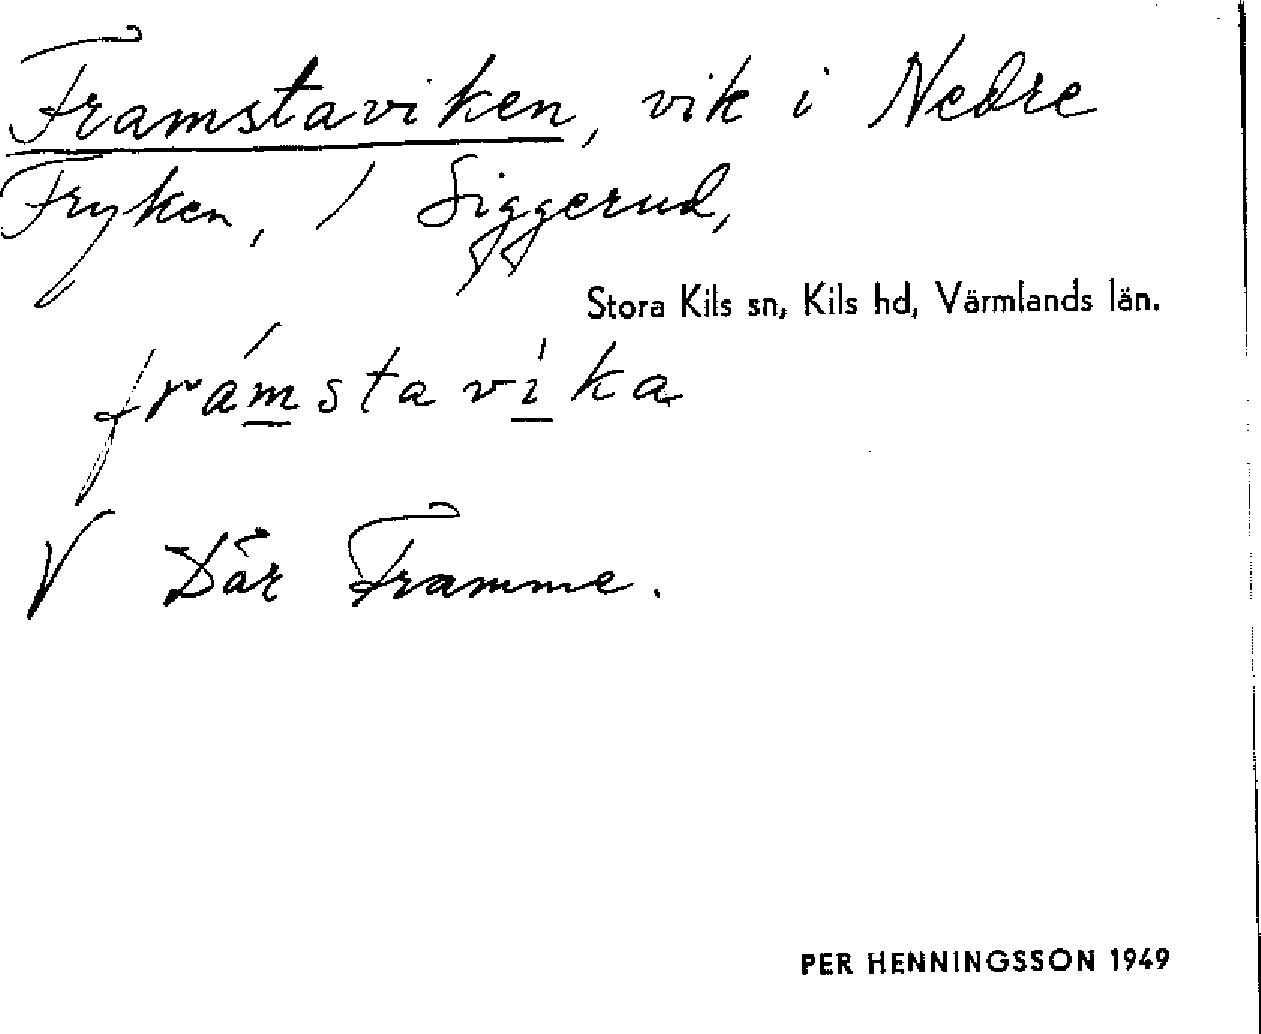 Framstaviken, vik i Nedre
Fryken, / Siggerud,
Stora Kils sn, Kils hd, Värmlands län.
frámstavi̍ka
V Där Framme.
PER HENNINGSSON 1949